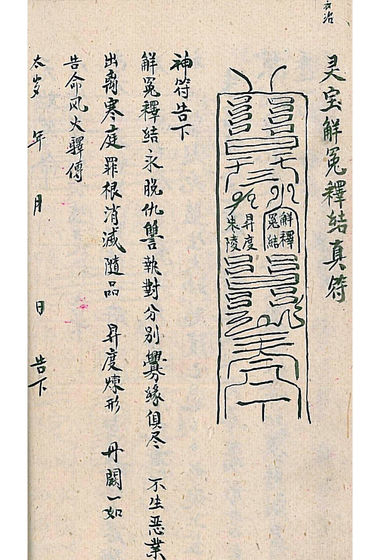 灵宝解冤释结真符
解释
冤结
昇度
朱陵
神符告下
解冤释结永脱仇讐報對分别釁缘俱尽 不生惡業
出离寒庭 罪根消滅隨品 昇度煉形 丹闕一如
告命风火驛傳
太岁 年 月 日 告下